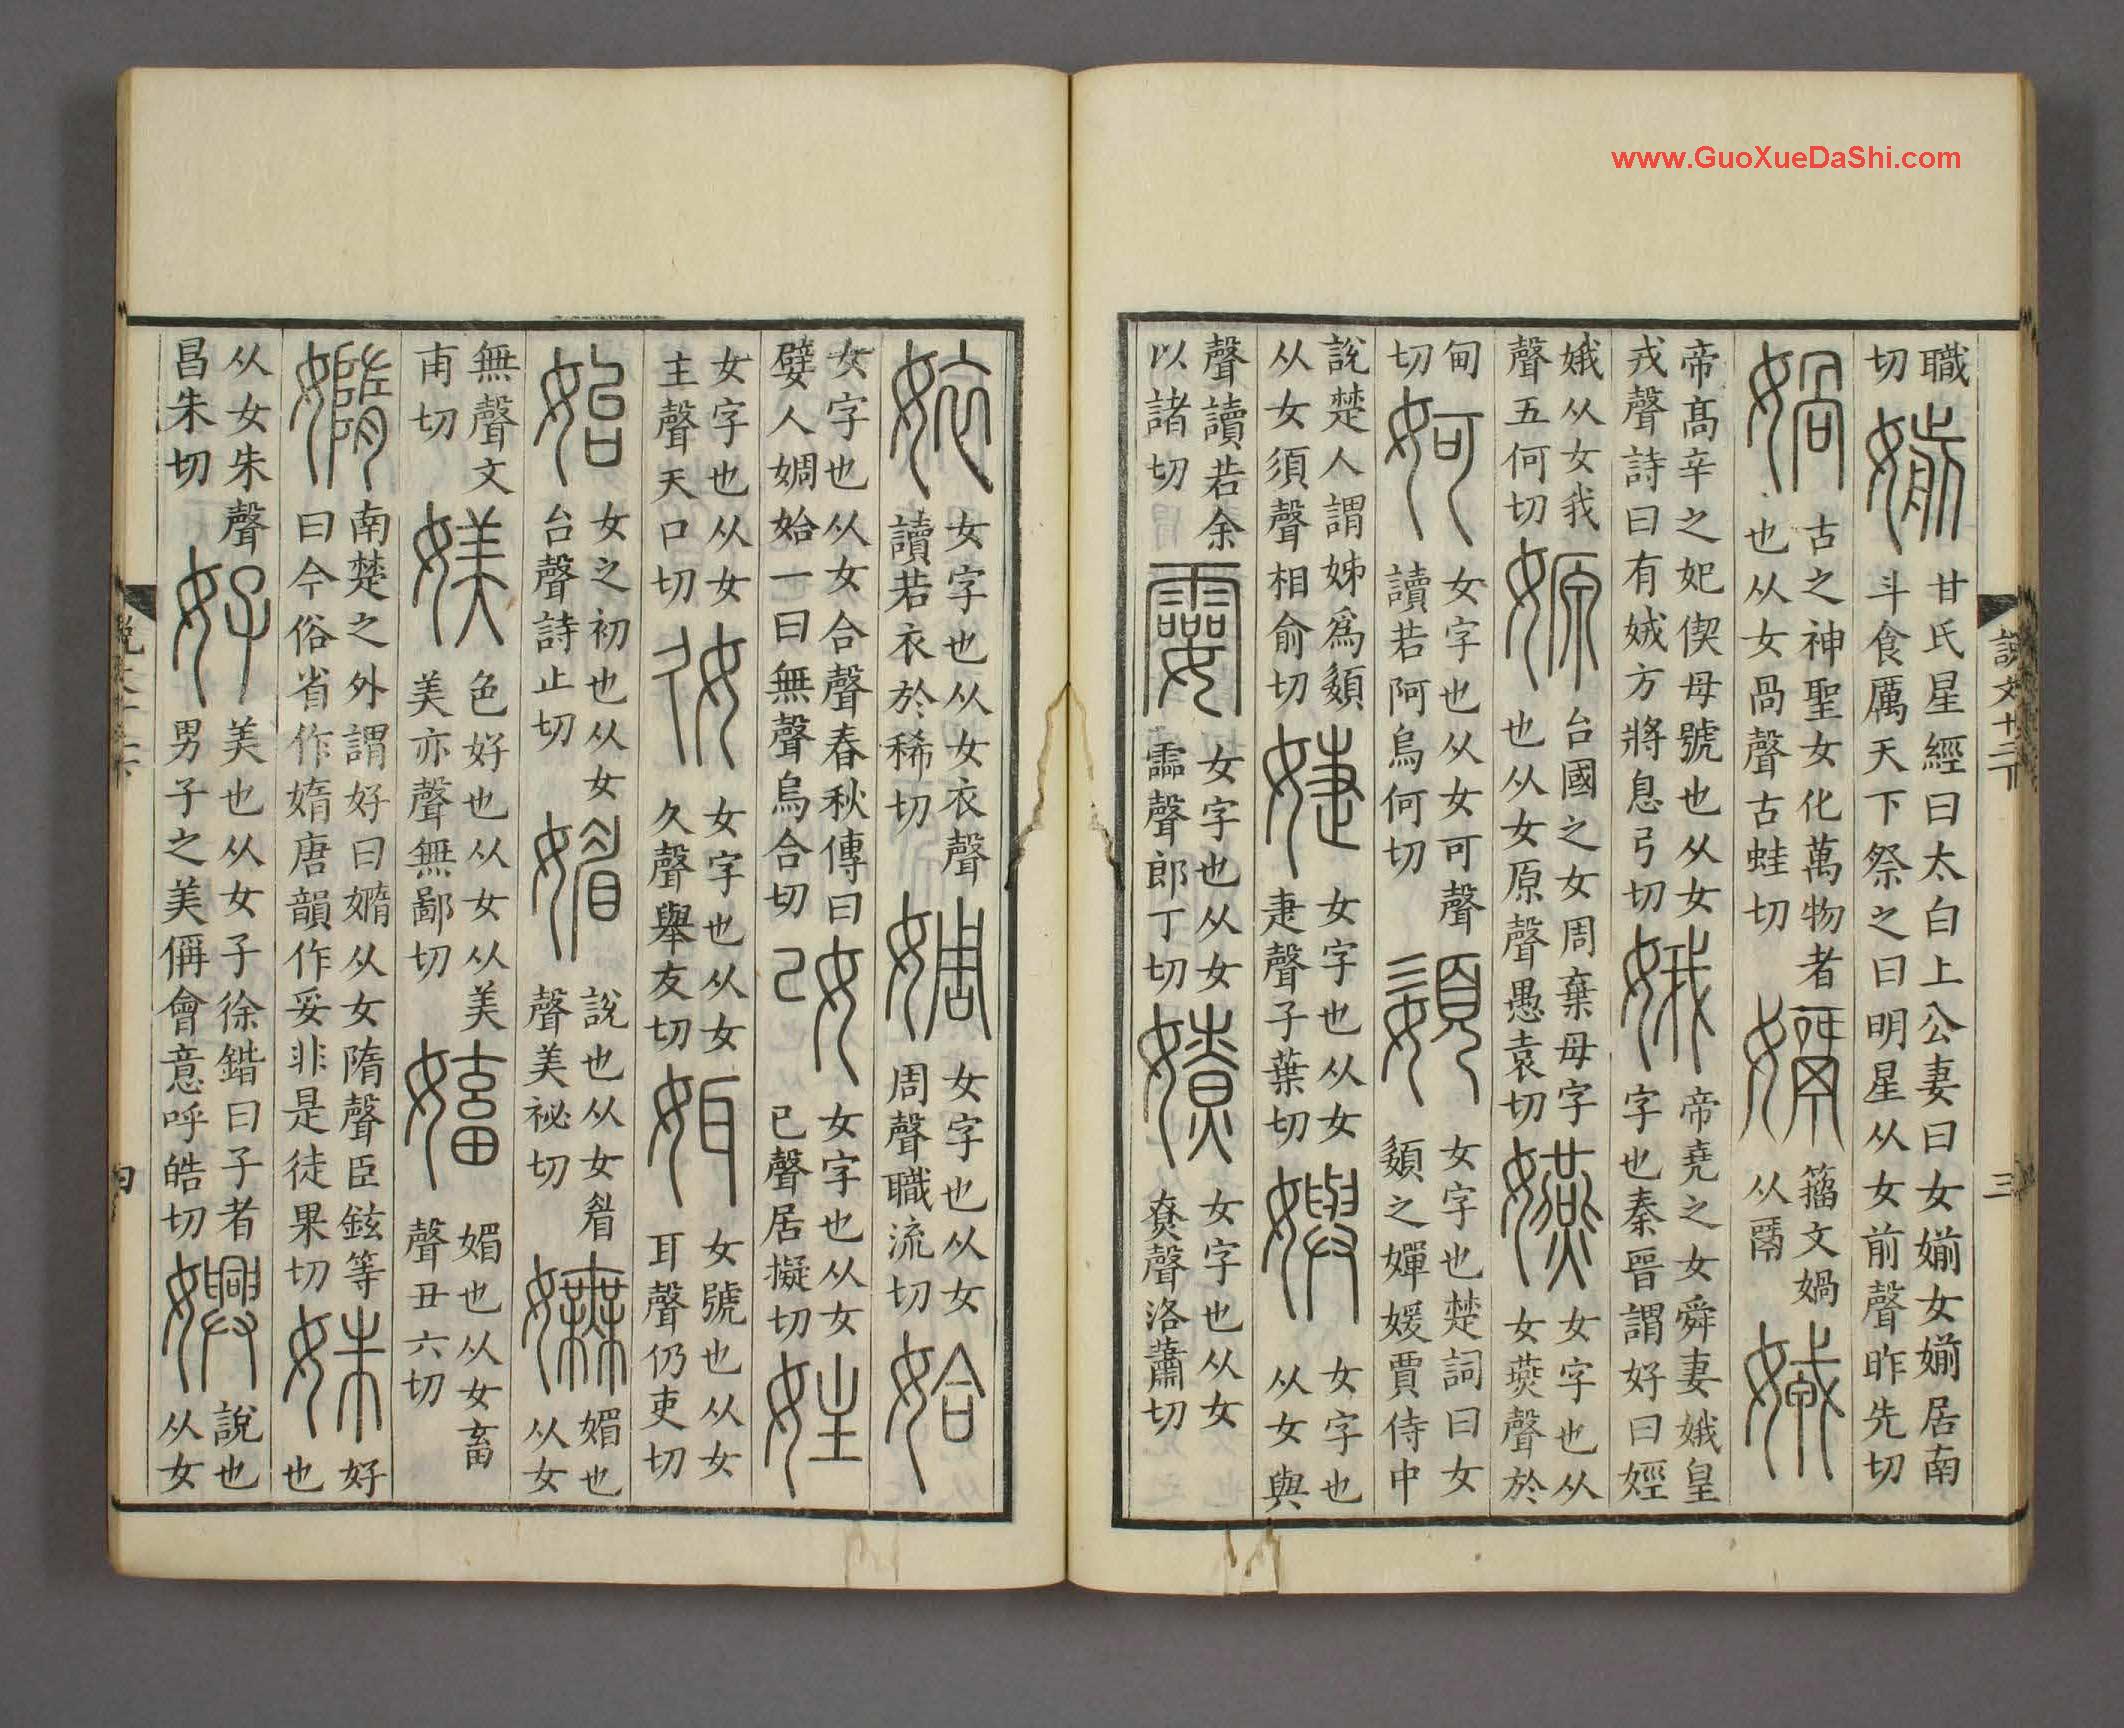 職切媊甘氏星經曰太白上公妻曰女媊女媊居南斗食厲天下祭之曰明星从女前聲昨先切
媧古之神聖女化萬物者也从女咼聲古蛙切籀文媧从娀
帝高辛之妃偰母號也从女戎聲詩曰有娀方將息弓切娥帝堯之女舜妻娥皇字也秦晉謂好曰娙
娥从女我聲五何切嫄台國之女周棄母字也从女原聲愚袁切嬿女字也从女燕聲於
甸切妸女字也从女可聲讀若阿烏何切嬃女字也楚詞曰女嬃之嬋媛賈侍中
說楚人謂姊爲嬃从女須聲相俞切婕女字也从女疌聲子葉切嬩女字也从女與
聲讀若余以諸切孁女字也从女霝聲郎丁切嫽女字也从女尞聲洛蕭切
說文十二下
三
㛄女字也从女衣聲讀若衣於稀切婤女字也从女周聲職流切姶
女字也从女合聲春秋傳曰嬖人婤姶一曰無聲烏合切改女字也从女已聲居擬切妵
女字也从女主聲天口切㚲女字也从女久聲舉友切姆女號也从女耳聲仍吏切
始女之初也从女台聲詩止切媚說也从女眉聲美祕切嫵媚也从女
無聲文甫切媄色好也从女从美美亦聲無鄙切嬸媚也从女畜聲丑六切
嫷南楚之外謂好曰嫷从女隋聲臣鉉等曰今俗省作媠唐韻作妥非是徒果切姝好也
从女朱聲昌朱切好美也从女子徐鍇曰子者男子之美偁會意呼皓切嬹說也从女
說文十二下
四
www.GuoXueDaShi.com